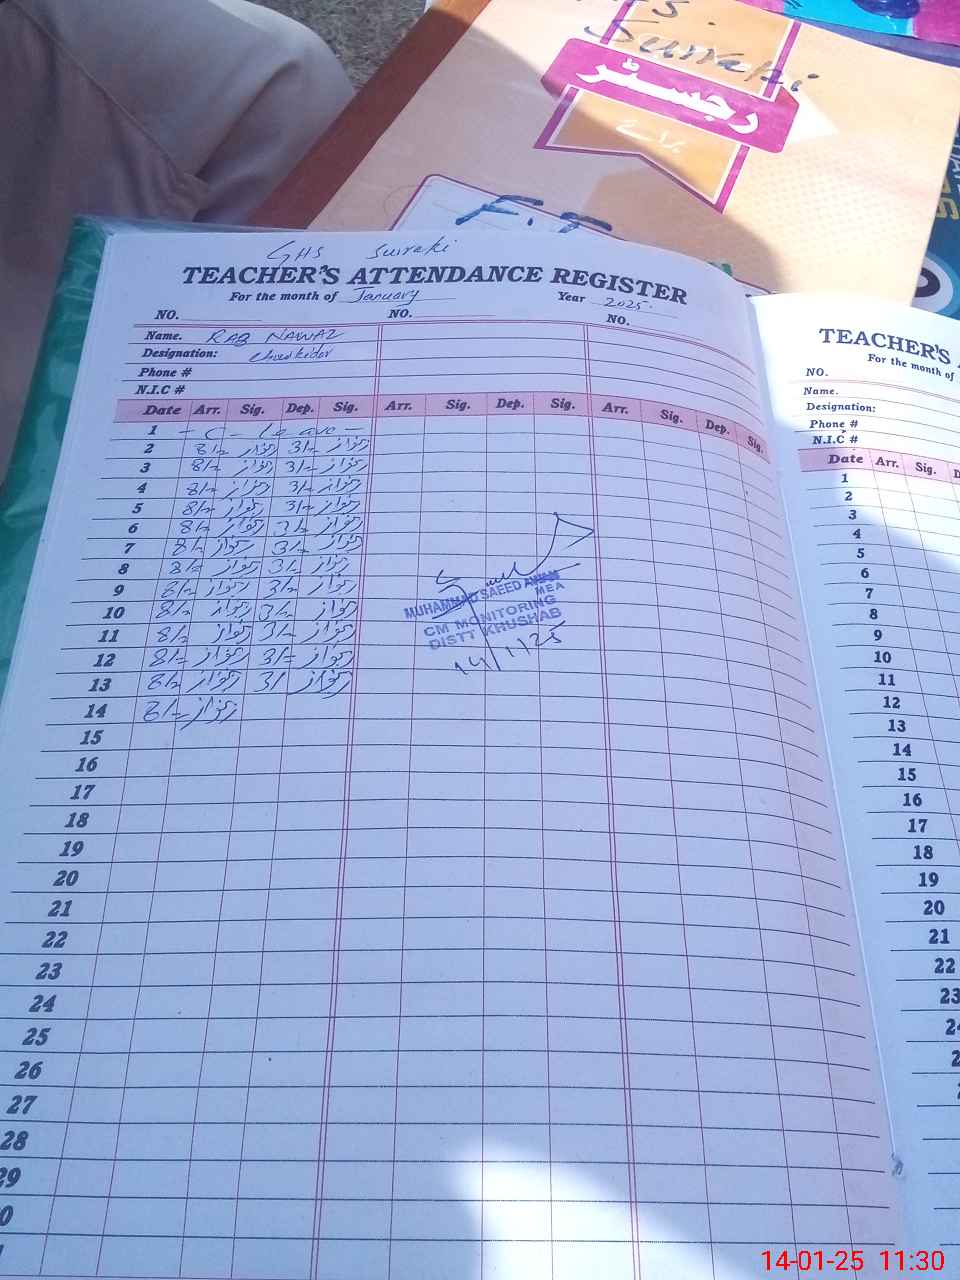 Surraki
رجسٹر
برائے
GHS Surraki
TEACHER'S ATTENDANCE REGISTER
For the month of January Year 2025.
NO. NO. NO.
Name. RAB NAWAZ
Designation: Chowkidar
Phone #
N.I.C #
Date Arr. Sig. Dep. Sig. Arr. Sig. Dep. Sig. Arr. Sig. Dep. Sig.
1 - C - Leave -
2 8/= ربنواز 3/= ربنواز
3 8/= ربنواز 3/= ربنواز
4 8/= ربنواز 3/= ربنواز
5 8/= ربنواز 3/= ربنواز
6 8/= ربنواز 3/= ربنواز
7 8/= ربنواز 3/= ربنواز
8 8/= ربنواز 3/= ربنواز
9 8/= ربنواز 3/= ربنواز
10 8/= ربنواز 3/= ربنواز
11 8/= ربنواز 3/= ربنواز
12 8/= ربنواز 3/= ربنواز
13 8/= ربنواز 3/ ربنواز
14 8/= ربنواز
15
16
17
18
19
20
21
22
23
24
25
26
27
28
29
MUHAMMAD SAEED AWAN
MEA
CM MONITORING
DISTT KHUSHAB
14/1/25
TEACHER'S
For the month of
NO.
Name.
Designation:
Phone #
N.I.C #
Date Arr. Sig.
1
2
3
4
5
6
7
8
9
10
11
12
13
14
15
16
17
18
19
20
21
22
23
14-01-25 11:30